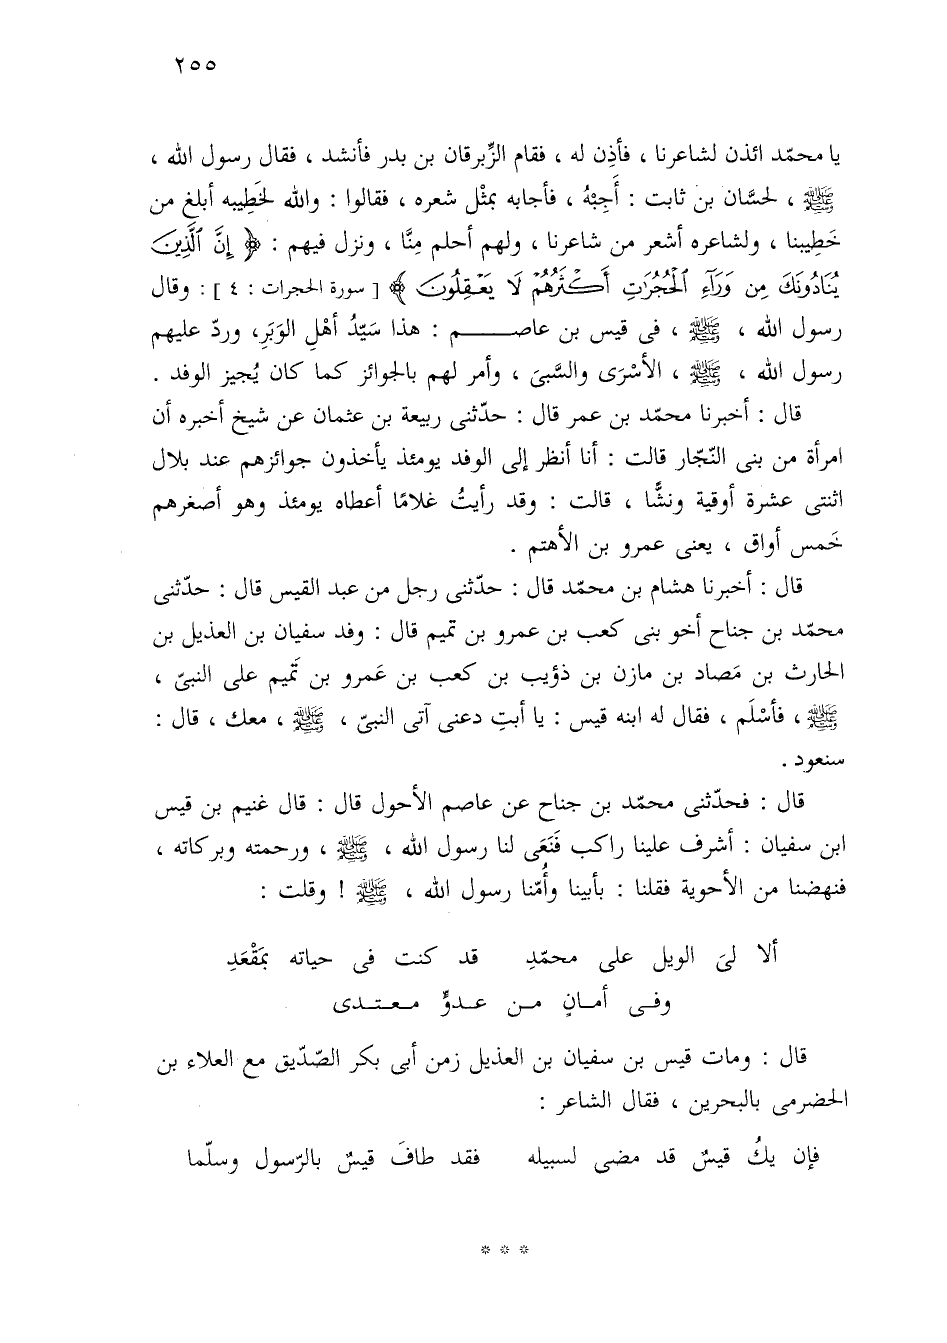 ٢٥٥
يا محمّد ائذن لشاعرنا ، فأذِن له ، فقام الزِّبرقان بن بدر فأنشد ، فقال رسول الله ،
ﷺ ، لحسَّان بن ثابت : أَجِبْهُ ، فأجابه بمثْل شعره ، فقالوا : والله لخَطِيبه أبلغ من
خَطِيبنا ، ولشاعره أشعر من شاعرنا ، ولهم أحلم مِنَّا ، ونزل فيهم : ﴿ إِنَّ ٱلَّذِينَ
يُنَادُونَكَ مِن وَرَآءِ ٱلْحُجُرَٰتِ أَكْثَرُهُمْ لَا يَعْقِلُونَ ﴾ [ سورة الحجرات : ٤ ] : وقال
رسول الله ، ﷺ ، فى قيس بن عاصم : هذا سَيّدُ أهْلِ الوَبَرِ، وردّ عليهم
رسول الله ، ﷺ ، الأسْرَى والسَّبىَ ، وأمر لهم بالجوائز كما كان يُجيز الوفد .
قال : أخبرنا محمّد بن عمر قال : حدّثنى ربيعة بن عثمان عن شيخ أخبره أن
امرأة من بنى النّجّار قالت : أنا أنظر إلى الوفد يومئذ يأخذون جوائزهم عند بلال
اثنتى عشرة أوقية ونشًّا ، قالت : وقد رأيتُ غلامًا أعطاه يومئذ وهو أصغرهم
خَمس أواق ، يعنى عمرو بن الأهتم .
قال : أخبرنا هشام بن محمّد قال : حدّثنى رجل من عبد القيس قال : حدّثنى
محمّد بن جناح أخو بنى كعب بن عمرو بن تميم قال : وفد سفيان بن العذيل بن
الحارث بن مَصاد بن مازن بن ذؤيب بن كعب بن عَمرو بن تَميم على النبىّ ،
ﷺ ، فأسْلَم ، فقال له ابنه قيس : يا أبتِ دعنى آتى النبىّ ، ﷺ ، معك ، قال :
سنعود .
قال : فحدّثنى محمّد بن جناح عن عاصم الأحول قال : قال غنيم بن قيس
ابن سفيان : أشرف علينا راكب فَنَعَى لنا رسول الله ، ﷺ ، ورحمته وبركاته ،
فنهضنا من الأحوية فقلنا : بأبينا وأُمّنا رسول الله ، ﷺ ! وقلت :
ألا لىَ الويل على محمّدِ قد كنت فى حياته بمَقْعَدِ
وفى أمانٍ من عدوٍّ معتدى
قال : ومات قيس بن سفيان بن العذيل زمن أبى بكر الصّدّيق مع العلاء بن
الحضرمى بالبحرين ، فقال الشاعر :
فإن يكُ قيسٌ قد مضى لسبيله فقد طافَ قيسٌ بالرّسول وسلّما
* * *